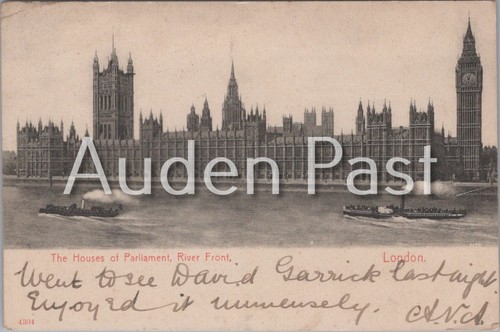 Auden Past
The Houses of Parliament, River Front, London.
Went to see David Garrick last night.
Enjoyed it immensely. A.V.A.
4304